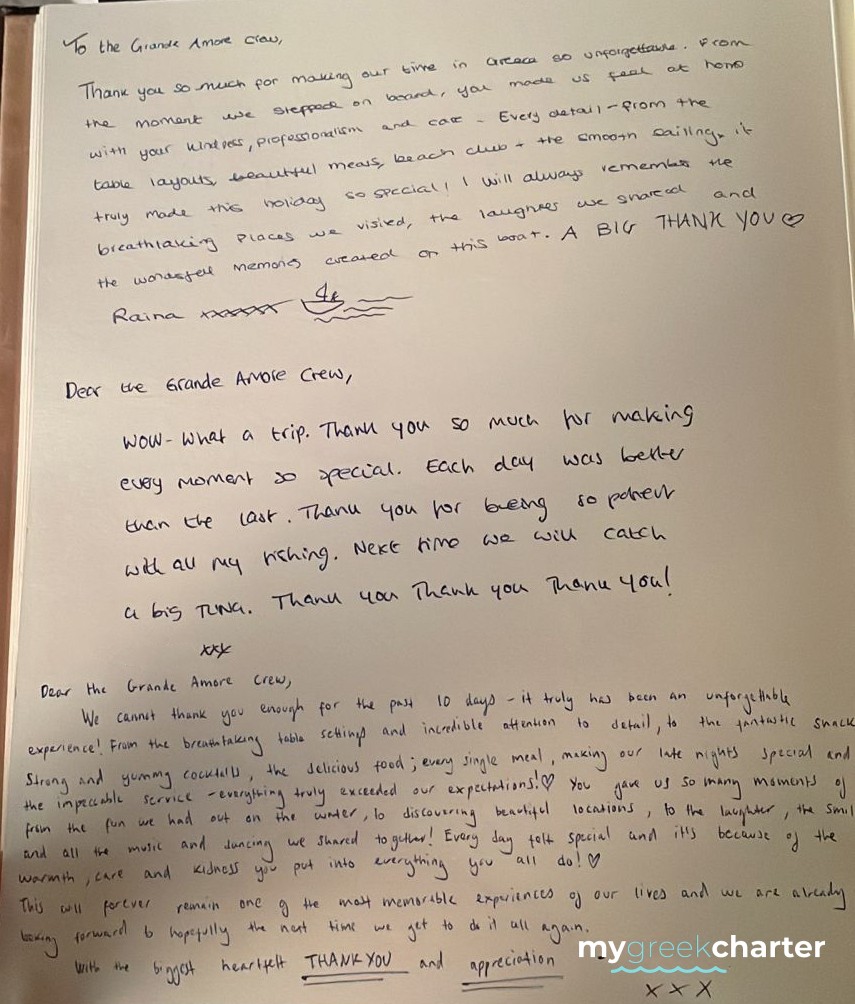 To the Grande Amore Crew,
Thank you so much for making our time in Greece so unforgettable. From
the moment we stepped on board, you made us feel at home
with your kindness, professionalism and care - Every detail - from the
table layouts, beautiful meals, beach club + the smooth sailing, it
truly made this holiday so special! I will always remember the
breathtaking places we visited, the laughter we shared and
the wonderful memories created on this boat. A BIG THANK YOU ♡
Raina xxxxxx
Dear the Grande Amore Crew,
WOW - What a trip. Thank you so much for making
every moment so special. Each day was better
than the last. Thank you for being so patient
with all my fishing. Next time we will catch
a big TUNA. Thank you Thank you Thank you!
xxx
Dear the Grande Amore Crew,
We cannot thank you enough for the past 10 days - it truly has been an unforgettable
experience! From the breathtaking table settings and incredible attention to detail, to the fantastic snack
strong and yummy cocktails, the delicious food; every single meal, making our late nights special and
the impeccable service - everything truly exceeded our expectations! ♡ You gave us so many moments of
from the fun we had out on the water, to discovering beautiful locations, to the laughter, the smil
and all the music and dancing we shared together! Every day felt special and it's because of the
warmth, care and kidness you put into everything you all do! ♡
This will forever remain one of the most memorable experiences of our lives and we are already
looking forward to hopefully the next time we get to do it all again.
With the biggest heartfelt THANK YOU and appreciation
mygreekcharter
X X X